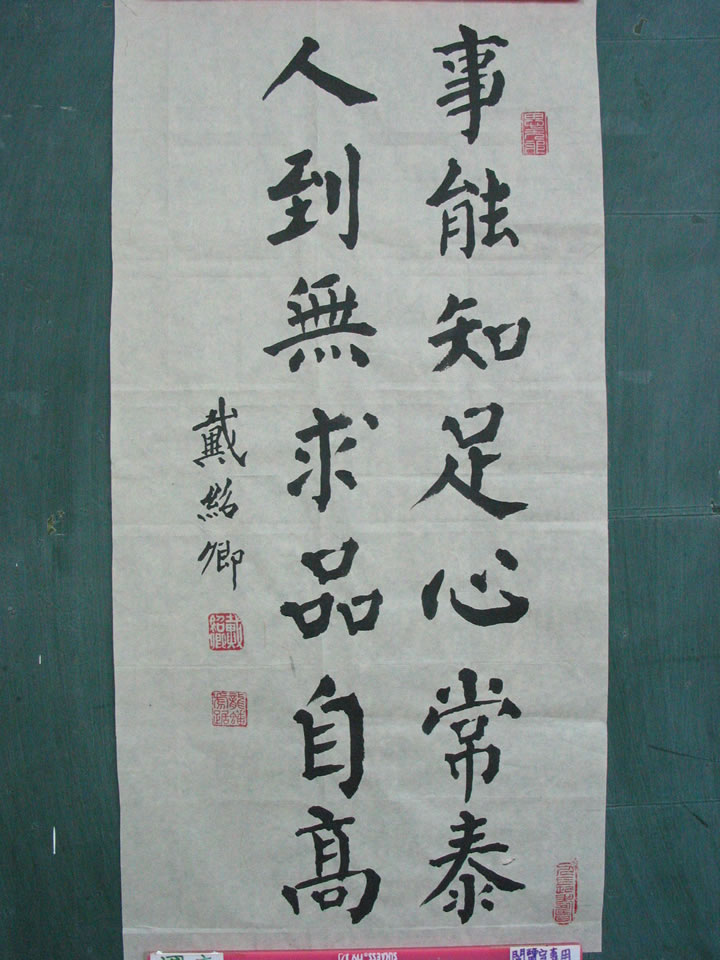 事能知足心常泰
人到無求品自高
戴紹卿
戴紹卿